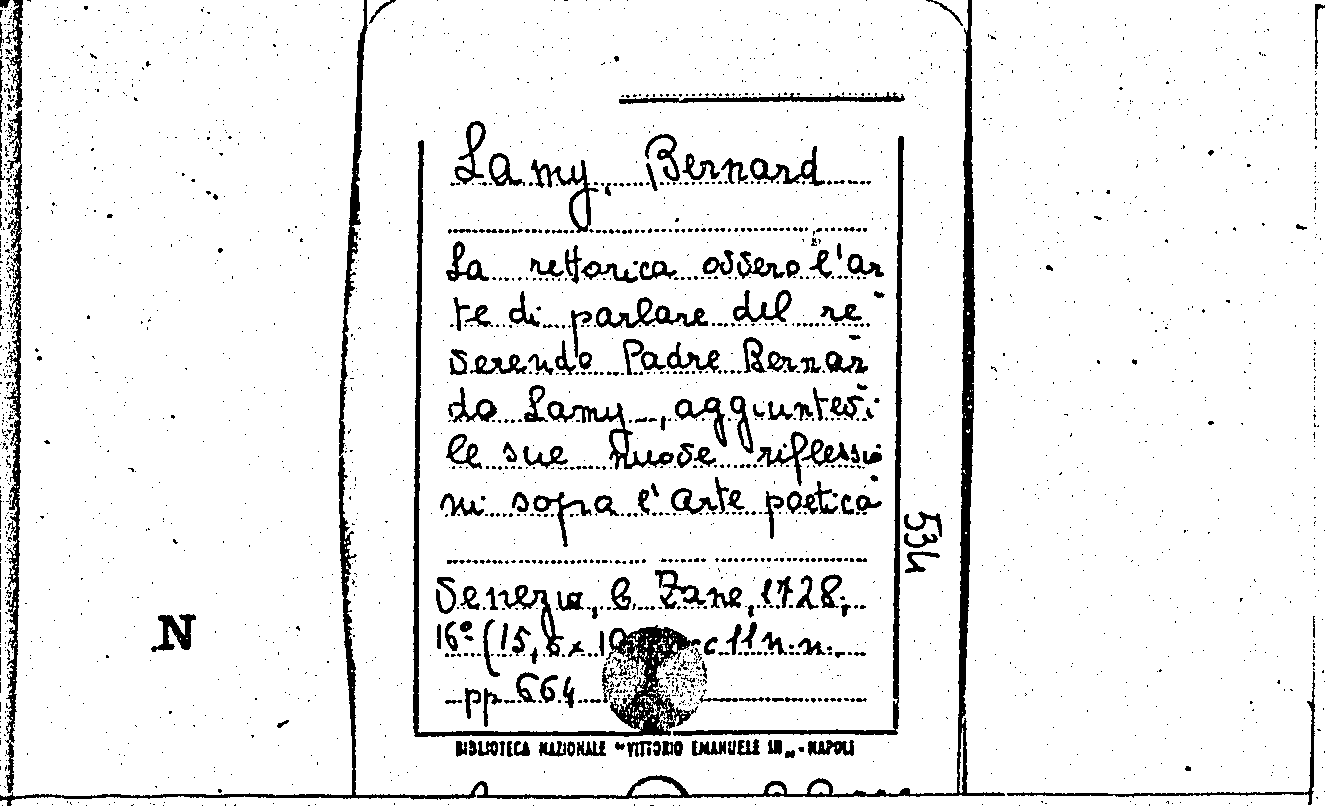 Lamy, Bernard
La rettorica ossero l'ar
te di parlare del re
verendo Padre Bernar
do Lamy, aggiuntevi
le sue nuove riflessio
ni sopra l'arte poetica
534
Venezia, C. Zane, 1728,
16° (15,5 x 10 c 11 n.n.
pp 664
N
BIBLIOTECA NAZIONALE "VITTORIO EMANUELE III„ - NAPOLI